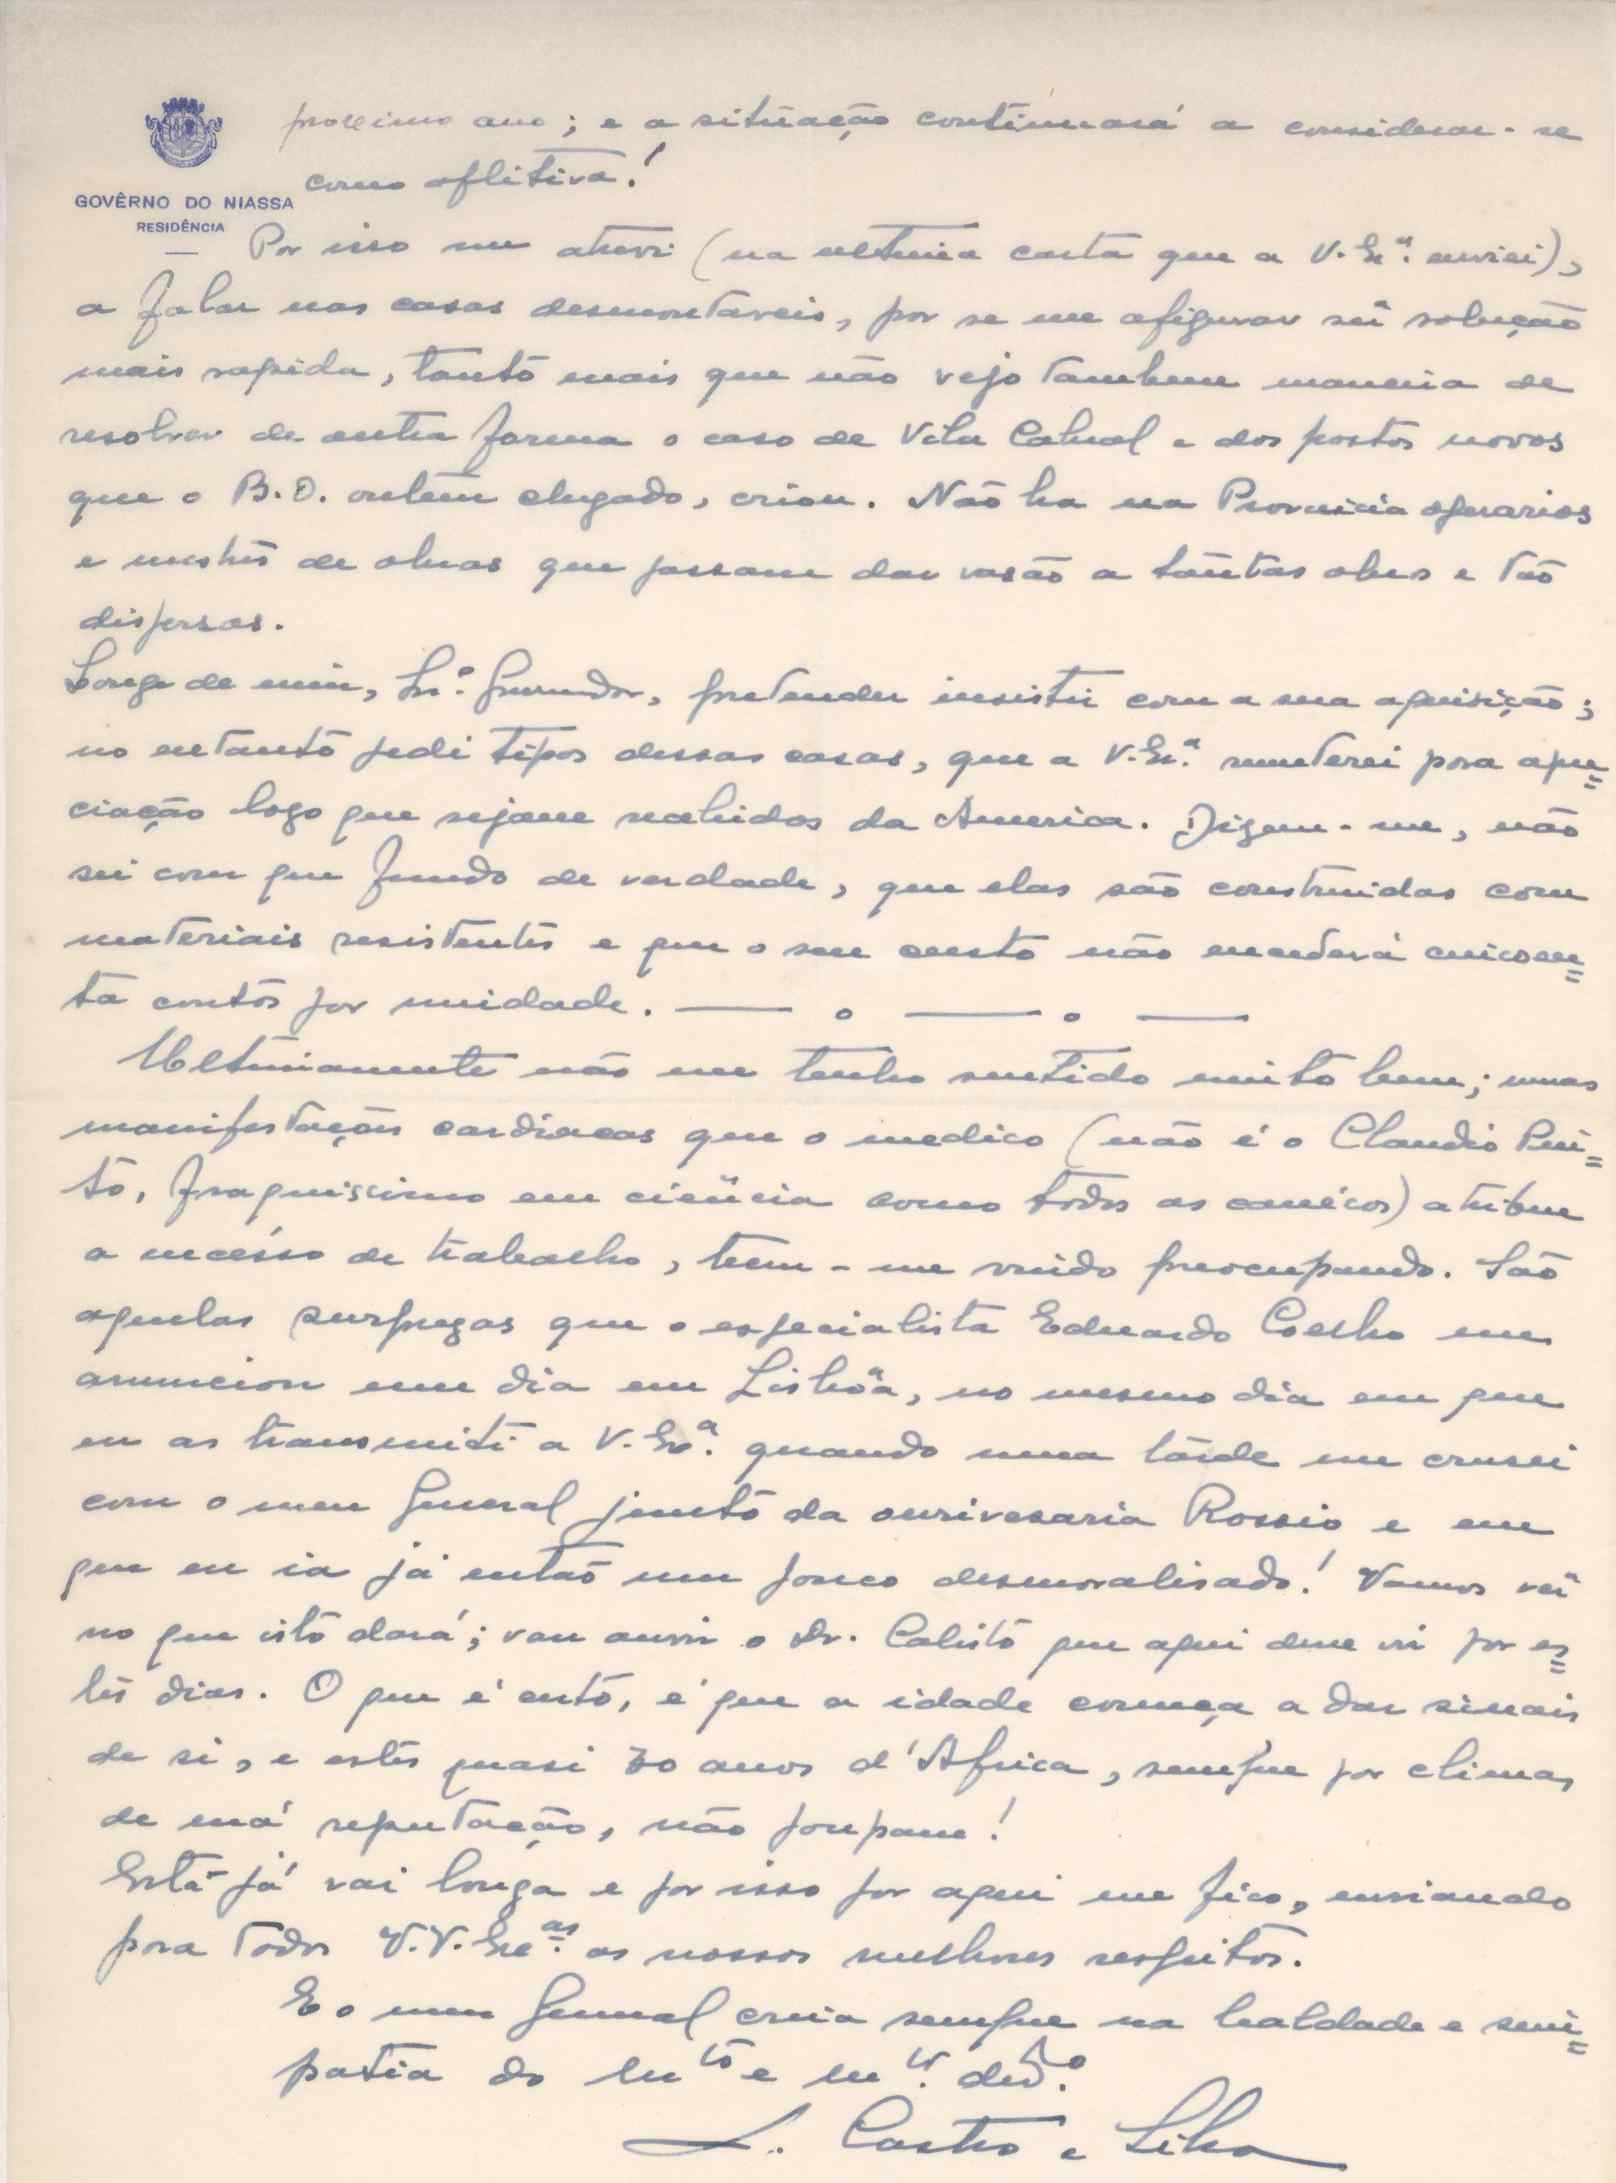 proximo ano; e a situação continuará a considerar-se
como aflitiva!
GOVÊRNO DO NIASSA
RESIDÊNCIA
Por isso me atrevi (na ultima carta que a V. Exª. enviei),
a falar nas casas desmontaveis, por se me afigurar sêr solução
mais rapida, tanto mais que não vejo tambem maneira de
resolver de outra forma o caso de Vila Cabral e dos postos novos
que o B.O. ontem chegado, criou. Não ha na Provincia operarios
e mestres de obras que possam dar vasão a tantas obras e tão
dispersas.
Longe de mim, Snr. Governador, pretender insistir com a sua aquisição;
no entanto pedi tipos dessas casas, que a V. Exª. remeterei para apre=
ciação logo que sejam recebidos da America. Dizem-me, não
sei com que fundo de verdade, que elas são construidas com
materiais resistentes e que o seu custo não excederá cincoen=
ta contos por unidade. — o — o —
Ultimamente não me tenho sentido muito bem; umas
manifestações cardiacas que o medico (não é o Claudio Pin=
to, fraquissimo em ciência como todos os canécos) atribue
a excésso de trabalho, teem-me vindo preocupando. São
aquelas surprezas que o especialista Eduardo Coelho me
anunciou um dia em Lisbôa, no mesmo dia em que
eu as transmiti a V. Exª. quando uma tarde me crusei
com o meu General junto da ourivesaria Rossio e em
que eu ia já então um pouco desmoralisado! Vamos vêr
no que isto dará; vou ouvir o Dr. Calisto que aqui deve vir por es=
tes dias. O que é certo, é que a idade começa a dar sinais
de si, e estes quasi 30 anos d'Africa, sempre por climas
de má reputação, não poupam!
Esta já vai longa e por isso por aqui me fico, enviando
para todos V.V. Exas. os nossos melhores respeitos.
E o meu General creia sempre na lealdade e sim=
patia do mto e mto. dedo.
L. Castro e Silva